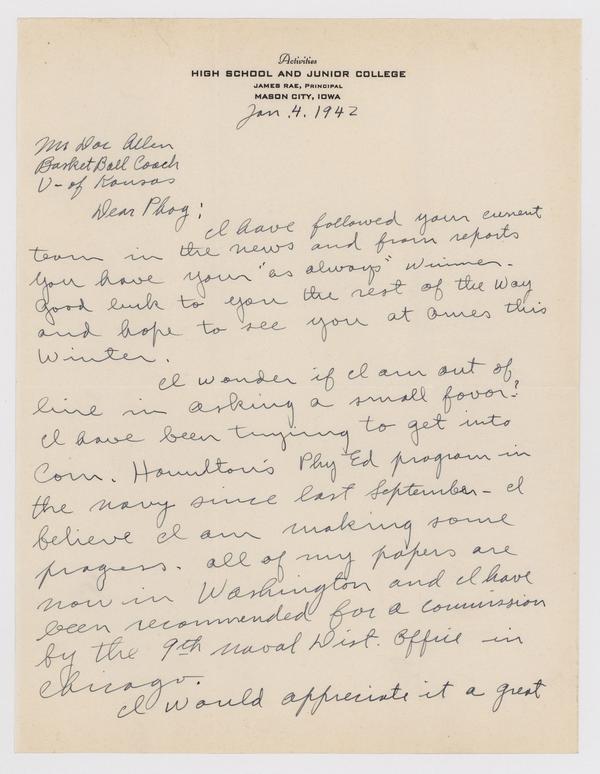 Activities
HIGH SCHOOL AND JUNIOR COLLEGE
JAMES RAE, PRINCIPAL
MASON CITY, IOWA
Jan. 4. 1942
Mr Doc Allen
BasketBall Coach
U- of Kansas
Dear Phog:
I have followed your current
team in the news and from reports
you have your "as always" winner.
Good luck to you the rest of the way
and hope to see you at Ames this
winter.
I wonder if I am out of
line in asking a small favor?
I have been trying to get into
Com. Hamilton's Phy Ed program in
the navy since last September - I
believe I am making some
progress. All of my papers are
now in Washington and I have
been recommended for a commission
by the 9th Naval Dist. Office in
Chicago.
I would appreciate it a great